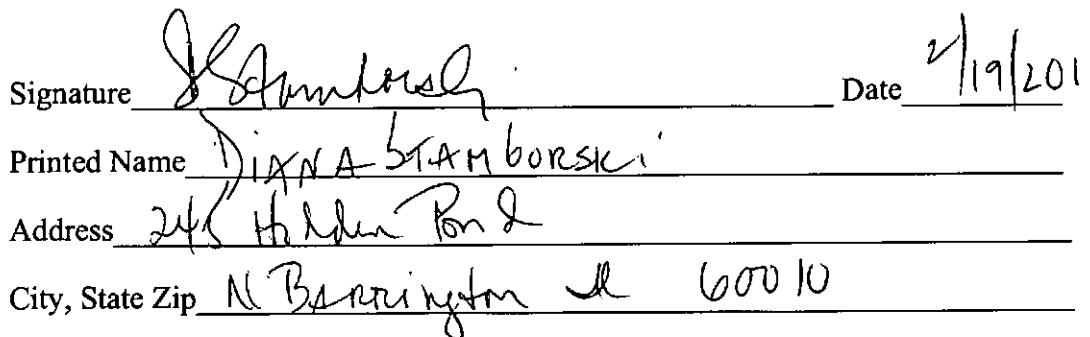 Signature DStamborski Date 2/19/201
Printed Name DIANA STAMBORSKI
Address 245 Hidden Pond
City, State Zip N BARRington Il 60010